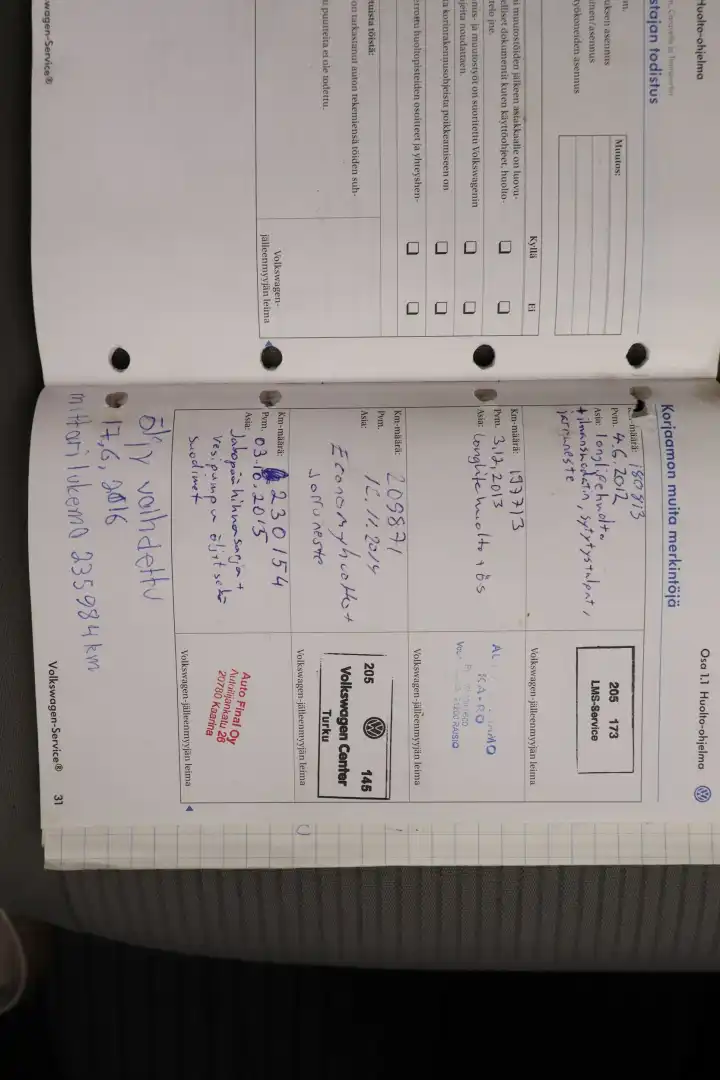 Huolto-ohjelma
stajan todistus
m.
uksen asennus
men/asennus
työkoneiden asennus
Muutos:
Kyllä
Ei
i muutostöiden jälkeen asiakkaalle on luovu-
elliset dokumentit kuten käyttöohjeet, huolto-
telo jne.
nis- ja muutostyöt on suoritettu Volkswagenin
jeita noudattaen.
a korirakennusohjeista poikkeamiseen on
erron huoltopisteiden osoitteet ja yhteyshen-
tuista töistä:
on tarkastanut auton tekemiensä töiden suh-
i puutteita ei ole todettu.
Volkswagen-
jälleenmyyjän leima
wagen-Service®
Osa 1.1 Huolto-ohjelma
Korjaamon muita merkintöjä
-määrä: 180913
Pvm. 4.6.2012
Asia: longlife huolto
+ilmansuodatin, sytytystulpat,
jarruneste
205 173
LMS-Service
Volkswagen-jälleenmyyjän leima
Km-määrä: 197713
Pvm. 3.12.2013
Asia: Longlifehuolto + ös
AL
MO
KA-RO
RAISIO
Volkswagen-jälleenmyyjän leima
Km-määrä: 209871
Pvm. 12.11.2014
Asia: Economyhuolto +
Jarruneste
205 145
Volkswagen Center
Turku
Volkswagen-jälleenmyyjän leima
Km-määrä: 230154
Pvm. 03.10.2015
Asia: Jakopään hihnansarja +
Vesipumppu öljyt sekä
Suodimet
Auto Finat Oy
Autoilijankatu 28
20780 Kaarina
Volkswagen-jälleenmyyjän leima
Öljy vaihdettu
17,6,2016
mittarilukema 235984 km
Volkswagen-Service® 31